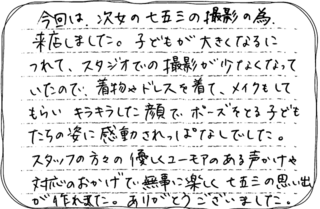 今回は、次女の七五三の撮影の為、
来店しました。子どもが大きくなるに
つれて、スタジオでの撮影が少なくなって
いたので、着物やドレスを着て、メイクもして
もらい キラキラした顔で、ポーズをとる子ども
たちの姿に感動されっぱなしでした。
スタッフの方々の優しくユーモアのある声かけや
対応のおかげで無事に楽しく七五三の思い出
が作れました。ありがとうございました。